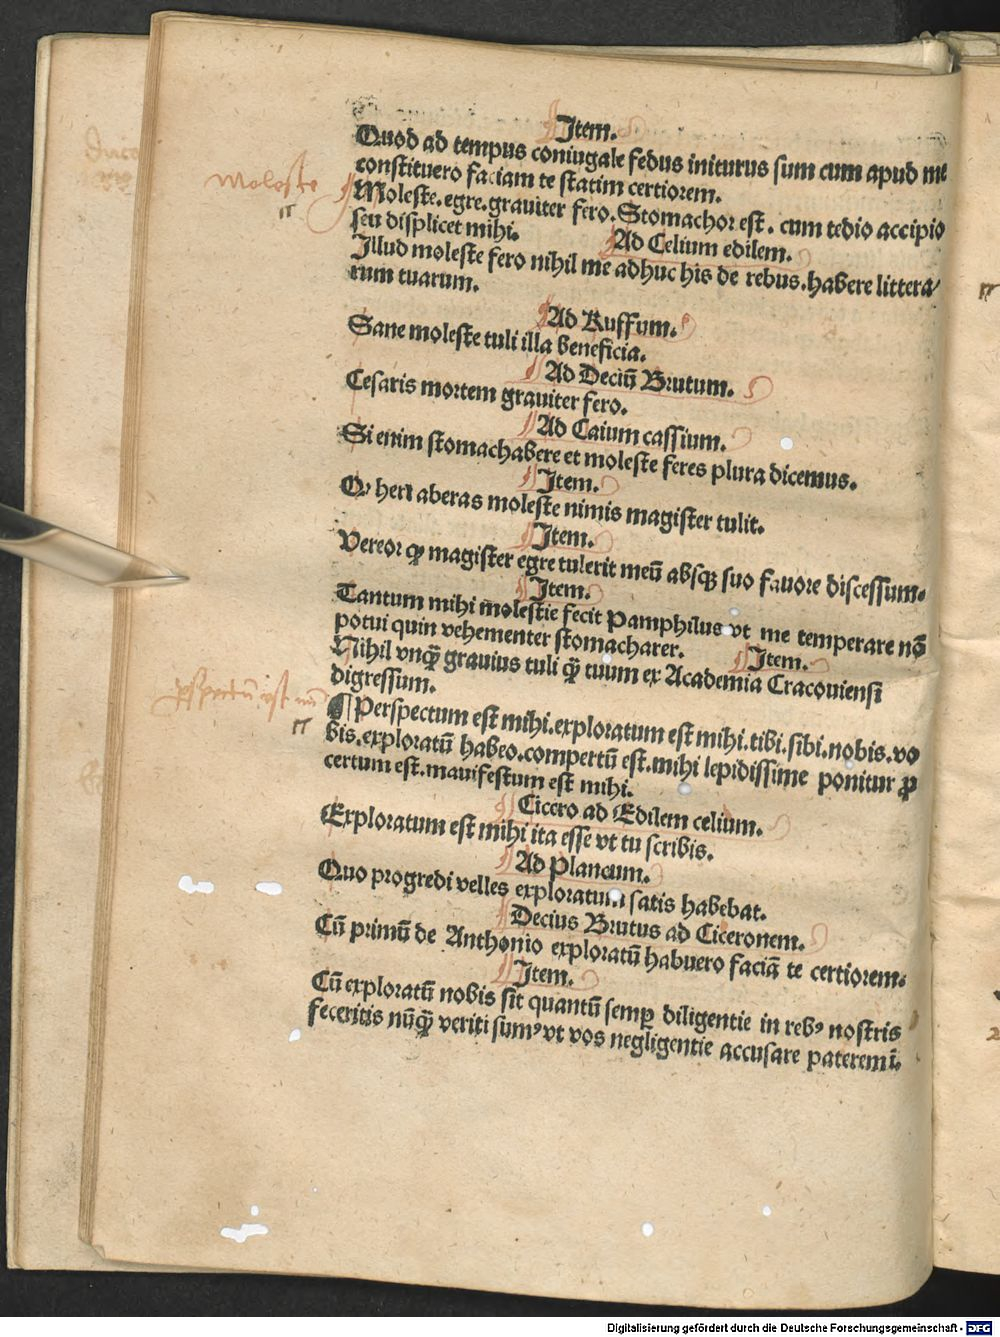 Item.
Quod ad tempus coniugale fedus initurus sum cum apud me
constituero faciam te statim certiorem.
Moleste
Moleste.egre.grauiter fero.Stomachor est. cum tedio accipio
seu displicet mihi.
Ad Celium edilem.
Illud moleste fero nihil me adhuc his de rebus.habere littera⸗
rum tuarum.
Ad Ruffum.
Sane moleste tuli illa beneficia.
Ad Deciū Brutum.
Cesaris mortem grauiter fero.
Ad Caium cassium.
Si enim stomachabere et moleste feres plura dicemus.
Item.
Qꝫ heri aberas moleste nimis magister tulit.
Item.
Vereor qꝫ magister egre tulerit meū absqꝫ suo fauore discessum.
Item.
Tantum mihi molestie fecit Pamphilus vt me temperare nō
potui quin vehementer stomacharer.
Item.
Nihil vnqꝫ̄ grauius tuli qꝫ̄ tuum ex Academia Cracouiensi
digressum.
¶Perspectum est mihi.exploratum est mihi.tibi.sibi.nobis.vo
bis.exploratū habeo.compertū est.mihi lepidissime ponitur ꝓ
certum est.manifestum est mihi.
Cicero ad Edilem celium.
Exploratum est mihi ita esse vt tu scribis.
Ad Plancum.
Quo progredi velles exploratum satis habebat.
Decius Brutus ad Ciceronem.
Cū primū de Anthonio exploratū habuero faciā te certiorem.
Item.
Cū exploratū nobis sit quantū semꝑ diligentie in rebꝰ nostris
feceritis nūqꝫ̄ veriti sumꝰ vt vos negligentie accusare pateremī.
Digitalisierung gefördert durch die Deutsche Forschungsgemeinschaft - DFG